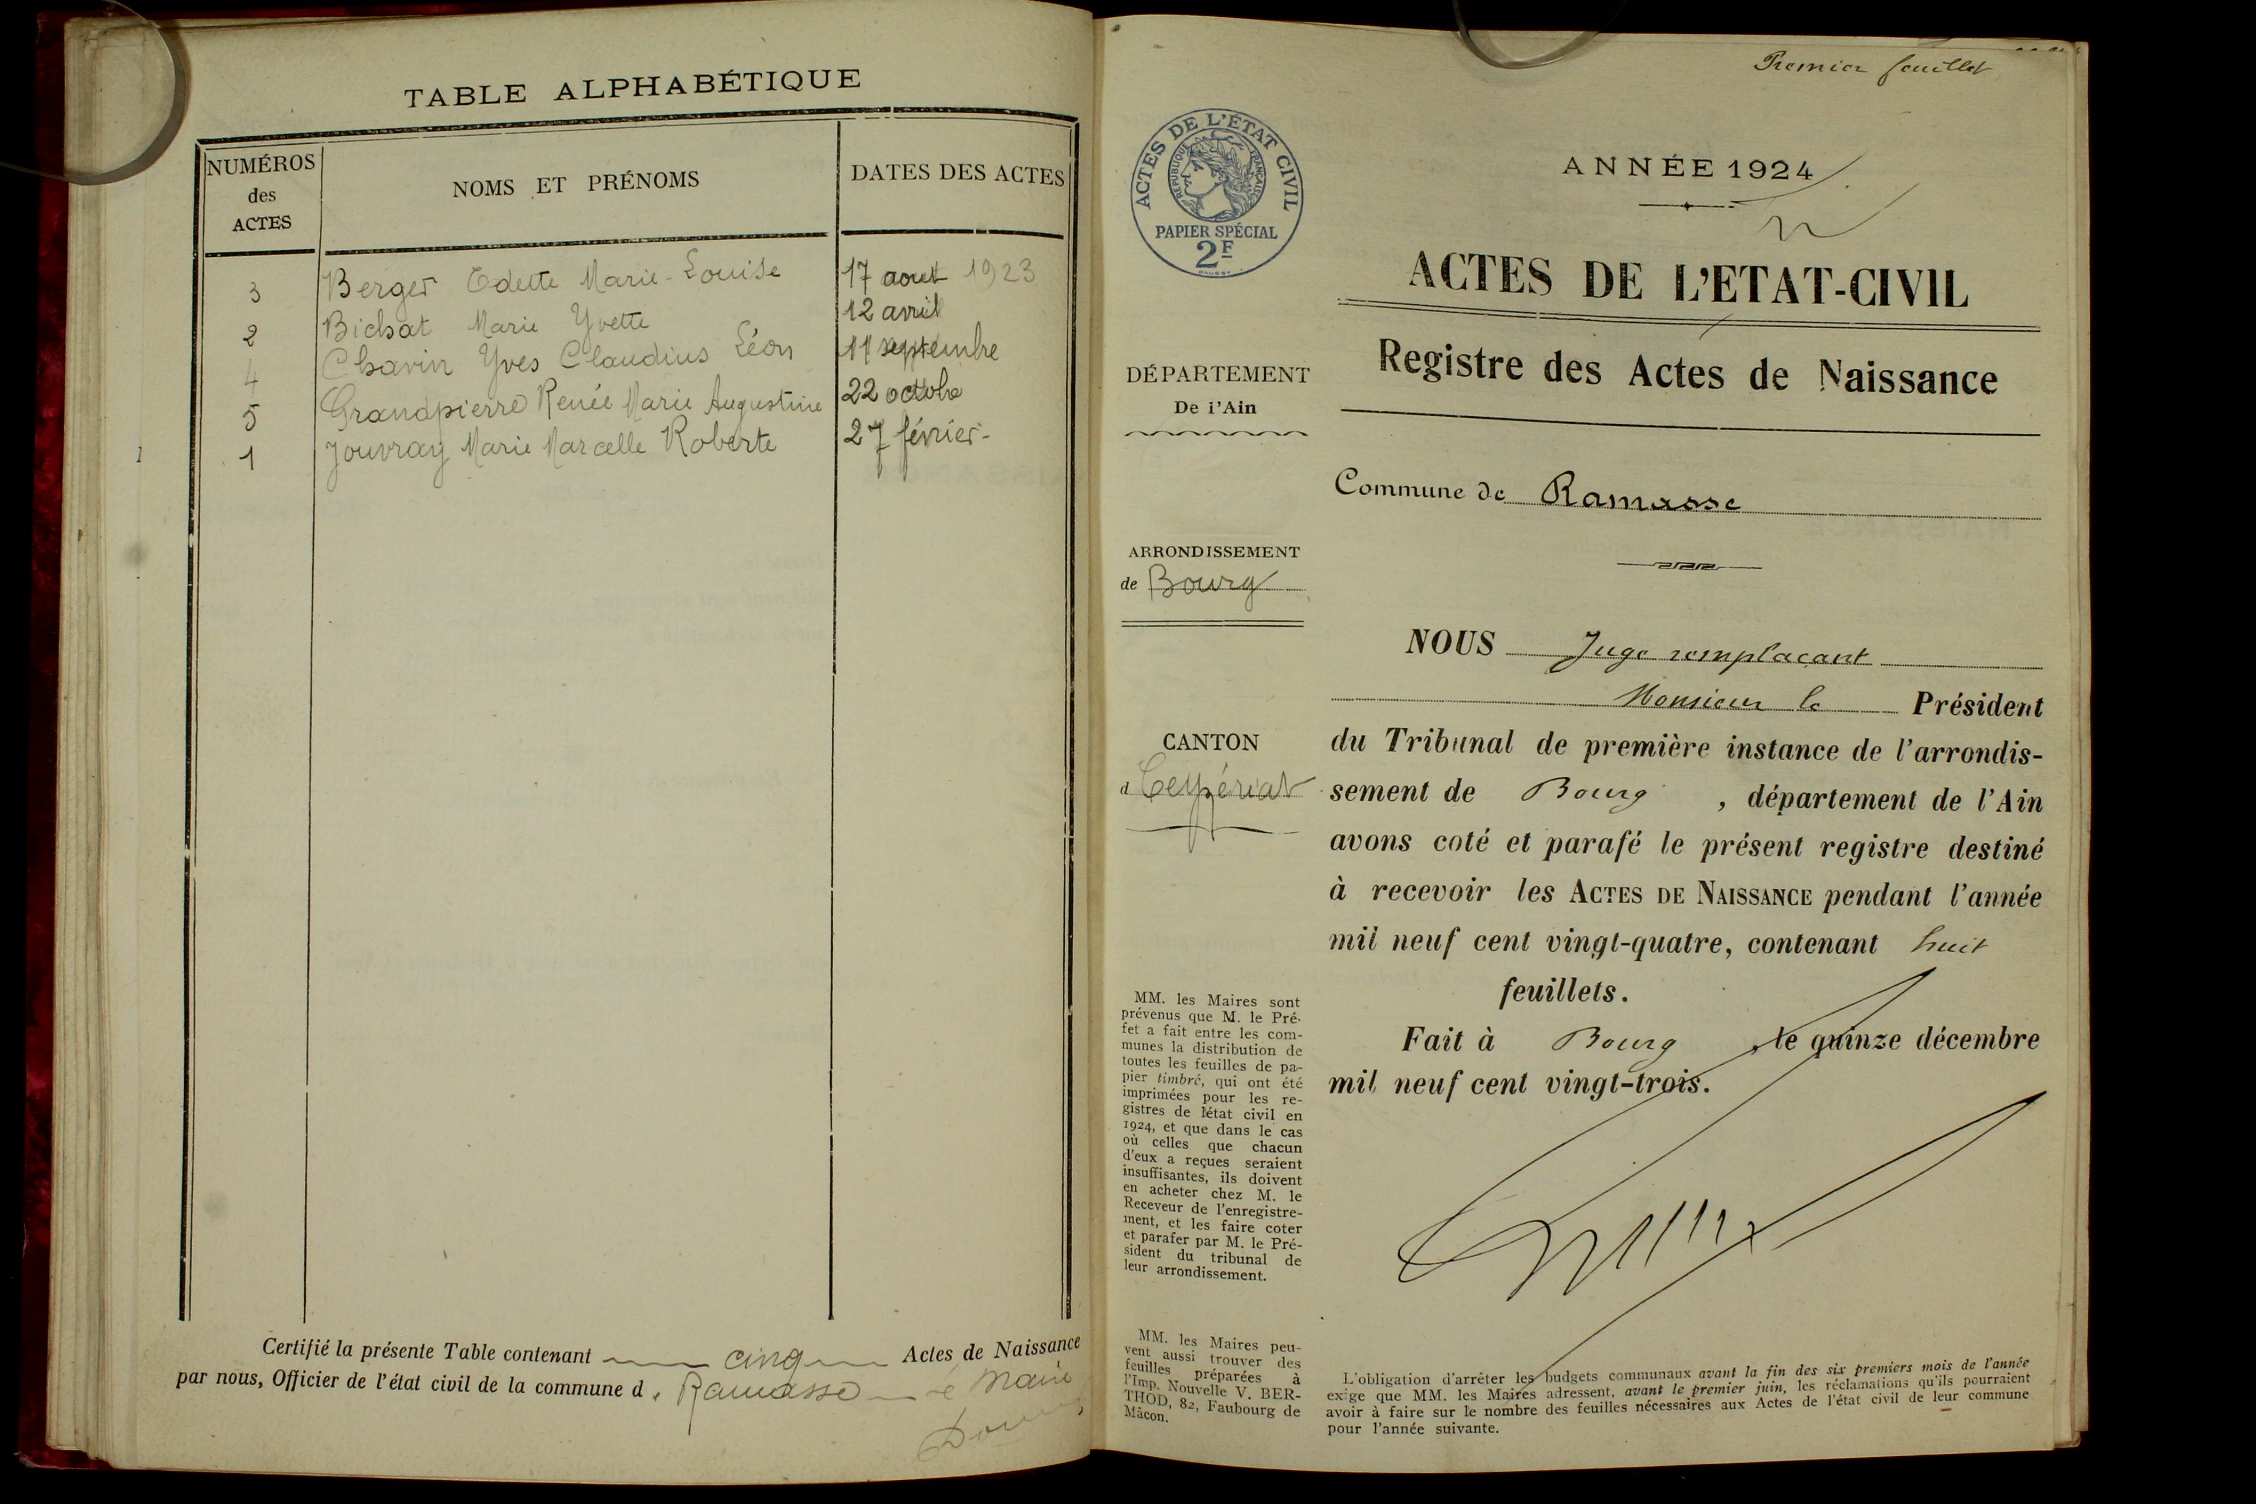 TABLE ALPHABÉTIQUE
NUMÉROS
des
ACTES
NOMS ET PRÉNOMS
DATES DES ACTES
3 Berger Odette Marie-Louise 17 aout 1923
2 Bichat Marie Yvette 12 avril
4 Chavin Yves Claudius Léon 11 septembre
5 Grandpierre Renée Marie Augustine 22 octobre
1 Jouvray Marie Marcelle Roberte 27 février
Certifié la présente Table contenant cinq Actes de Naissance
par nous, Officier de l'état civil de la commune d Ramasse
Maire
Premier feuillet
ACTES DE L'ÉTAT CIVIL
RÉPUBLIQUE FRANÇAISE
PAPIER SPÉCIAL
2F
ANNÉE 1924
ACTES DE L'ETAT-CIVIL
Registre des Actes de Naissance
DÉPARTEMENT
De i'Ain
Commune de Ramasse
ARRONDISSEMENT
de Bourg
CANTON
d Ceyzériat
NOUS Juge remplaçant
Monsieur le Président
du Tribunal de première instance de l'arrondis-
sement de Bourg , département de l'Ain
avons coté et parafé le présent registre destiné
à recevoir les ACTES DE NAISSANCE pendant l'année
mil neuf cent vingt-quatre, contenant huit
feuillets.
Fait à Bourg , le quinze décembre
mil neuf cent vingt-trois.
MM. les Maires sont
prévenus que M. le Pré-
fet a fait entre les com-
munes la distribution de
toutes les feuilles de pa-
pier timbré, qui ont été
imprimées pour les re-
gistres de l'état civil en
1924, et que dans le cas
où celles que chacun
d'eux a reçues seraient
insuffisantes, ils doivent
en acheter chez M. le
Receveur de l'enregistre-
ment, et les faire coter
et parafer par M. le Pré-
sident du tribunal de
leur arrondissement.
MM. les Maires peu-
vent aussi trouver des
feuilles préparées à
l'Imp. Nouvelle V. BER-
THOD, 82, Faubourg de
Mâcon.
L'obligation d'arrêter les budgets communaux avant la fin des six premiers mois de l'année
exige que MM. les Maires adressent, avant le premier juin, les réclamations qu'ils pourraient
avoir à faire sur le nombre des feuilles nécessaires aux Actes de l'état civil de leur commune
pour l'année suivante.